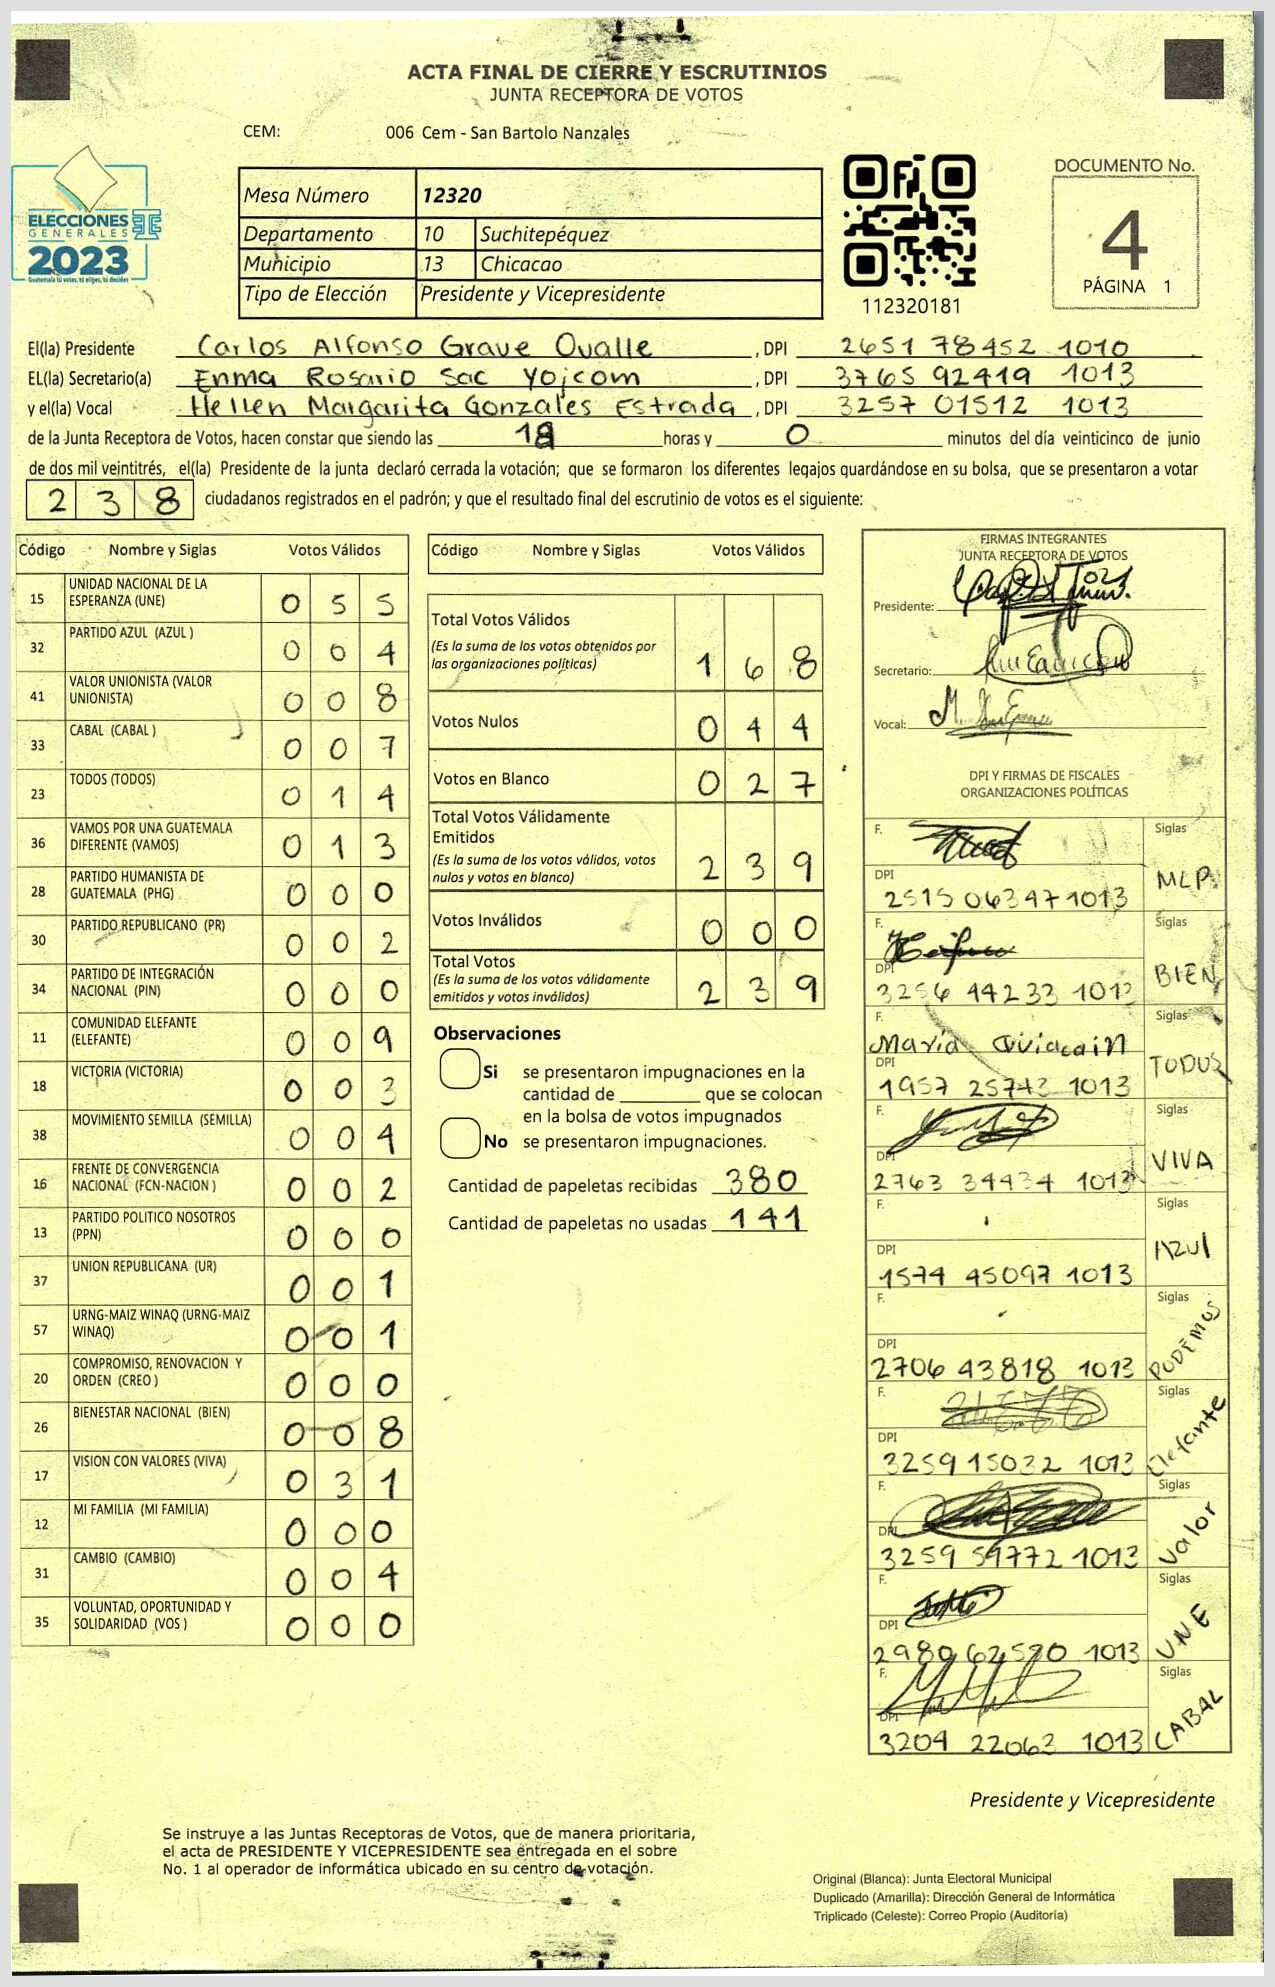 ACTA FINAL DE CIERRE Y ESCRUTINIOS
JUNTA RECEPTORA DE VOTOS
CEM: 006 Cem - San Bartolo Nanzales
ELECCIONES
GENERALES
2023
Guatemala tú votas, tú eliges, tú decides
Mesa Número 12320
Departamento 10 Suchitepéquez
Municipio 13 Chicacao
Tipo de Elección Presidente y Vicepresidente
112320181
DOCUMENTO No.
4
PÁGINA 1
El(la) Presidente Carlos Alfonso Grave Ovalle, DPI 2651 78452 1010
EL(la) Secretario(a) Enma Rosario Sac Yojcom, DPI 3765 92419 1013
y el(la) Vocal Hellen Margarita Gonzales Estrada, DPI 3257 01512 1013
de la Junta Receptora de Votos, hacen constar que siendo las 18 horas y 0 minutos del día veinticinco de junio
de dos mil veintitrés, el(la) Presidente de la junta declaró cerrada la votación; que se formaron los diferentes legajos guardándose en su bolsa, que se presentaron a votar
238 ciudadanos registrados en el padrón; y que el resultado final del escrutinio de votos es el siguiente:
Código Nombre y Siglas Votos Válidos
15 UNIDAD NACIONAL DE LA ESPERANZA (UNE) 0 5 5
32 PARTIDO AZUL (AZUL ) 0 0 4
41 VALOR UNIONISTA (VALOR UNIONISTA) 0 0 8
33 CABAL (CABAL ) 0 0 7
23 TODOS (TODOS) 0 1 4
36 VAMOS POR UNA GUATEMALA DIFERENTE (VAMOS) 0 1 3
28 PARTIDO HUMANISTA DE GUATEMALA (PHG) 0 0 0
30 PARTIDO REPUBLICANO (PR) 0 0 2
34 PARTIDO DE INTEGRACIÓN NACIONAL (PIN) 0 0 0
11 COMUNIDAD ELEFANTE (ELEFANTE) 0 0 9
18 VICTORIA (VICTORIA) 0 0 3
38 MOVIMIENTO SEMILLA (SEMILLA) 0 0 4
16 FRENTE DE CONVERGENCIA NACIONAL (FCN-NACION ) 0 0 2
13 PARTIDO POLITICO NOSOTROS (PPN) 0 0 0
37 UNION REPUBLICANA (UR) 0 0 1
57 URNG-MAIZ WINAQ (URNG-MAIZ WINAQ) 0 0 1
20 COMPROMISO, RENOVACION Y ORDEN (CREO ) 0 0 0
26 BIENESTAR NACIONAL (BIEN) 0 0 8
17 VISION CON VALORES (VIVA) 0 3 1
12 MI FAMILIA (MI FAMILIA) 0 0 0
31 CAMBIO (CAMBIO) 0 0 4
35 VOLUNTAD, OPORTUNIDAD Y SOLIDARIDAD (VOS ) 0 0 0
Código Nombre y Siglas Votos Válidos
Total Votos Válidos
(Es la suma de los votos obtenidos por las organizaciones políticas) 1 6 8
Votos Nulos 0 4 4
Votos en Blanco 0 2 7
Total Votos Válidamente Emitidos
(Es la suma de los votos válidos, votos nulos y votos en blanco) 2 3 9
Votos Inválidos 0 0 0
Total Votos
(Es la suma de los votos válidamente emitidos y votos inválidos) 2 3 9
Observaciones
Si se presentaron impugnaciones en la
cantidad de ________ que se colocan
en la bolsa de votos impugnados
No se presentaron impugnaciones.
Cantidad de papeletas recibidas 380
Cantidad de papeletas no usadas 141
FIRMAS INTEGRANTES
JUNTA RECEPTORA DE VOTOS
Presidente:
Secretario:
Vocal:
DPI Y FIRMAS DE FISCALES
ORGANIZACIONES POLÍTICAS
F. Siglas
DPI 2515 06347 1013 MLP
F. Siglas
DPI 3256 44233 1013 BIEN
F. María Siglas
DPI 1957 25743 1013 TODOS
F. Siglas
DPI 2763 34434 1013 VIVA
F. Siglas
DPI 1574 45097 1013 AZUL
F. Siglas
DPI 2706 43818 1013 PODEMOS
F. Siglas
DPI 3259 15032 1013 Elefante
F. Siglas
DPI 3259 59772 1013 Valor
F. Siglas
DPI 2980 62590 1013 UNE
F. Siglas
DPI 3204 22063 1013 CABAL
Presidente y Vicepresidente
Se instruye a las Juntas Receptoras de Votos, que de manera prioritaria,
el acta de PRESIDENTE Y VICEPRESIDENTE sea entregada en el sobre
No. 1 al operador de informática ubicado en su centro de votación.
Original (Blanca): Junta Electoral Municipal
Duplicado (Amarilla): Dirección General de Informática
Triplicado (Celeste): Correo Propio (Auditoría)